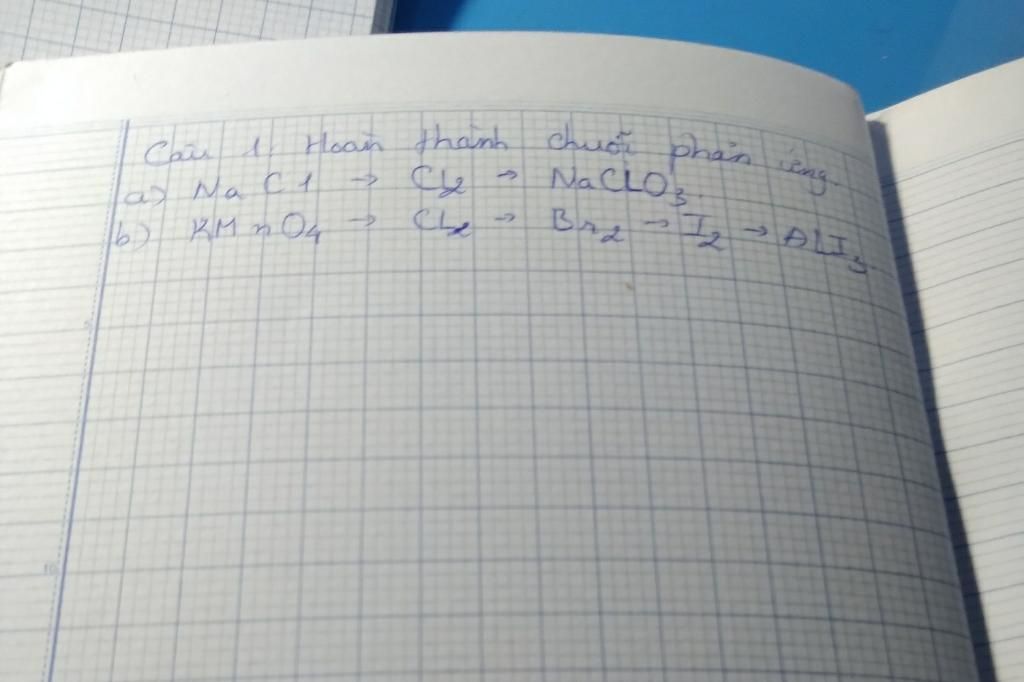 Câu 1: Hoàn thành chuỗi phản ứng.
a) NaCl → Cl₂ → NaClO₃.
b) KMnO₄ → Cl₂ → Br₂ → I₂ → AlI₃.
5
10